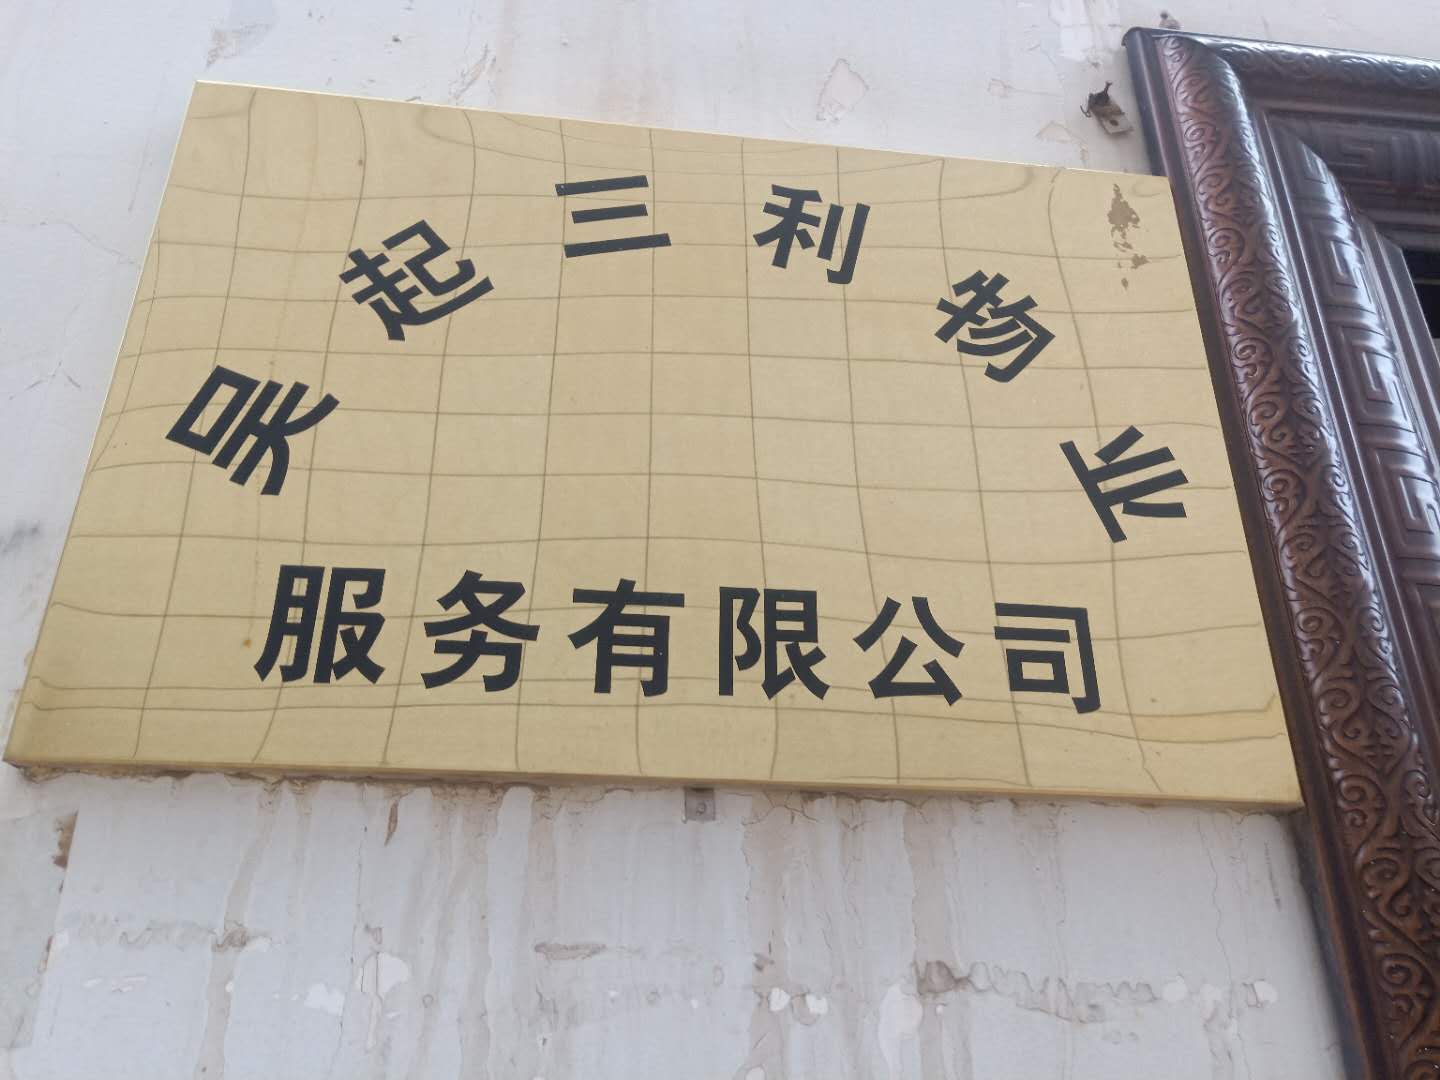 吴起三利物业
服务有限公司